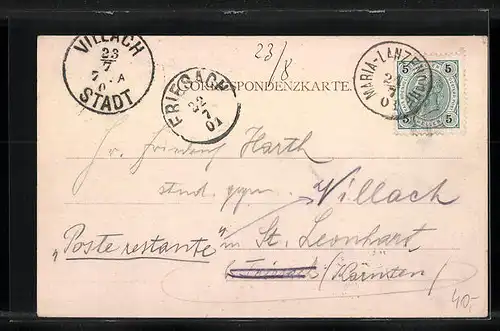 VILLACH
23
7
7 A
0
STADT
23/8
FRIESACH
22
7
01
CORRESPONDENZKARTE.
MARIA-LANZEN
5 5
5 5
Hr. Friedrich Harth
stud. gym. Villach
"Poste restante" in St. Leonhart
(Kärnten)
40,-